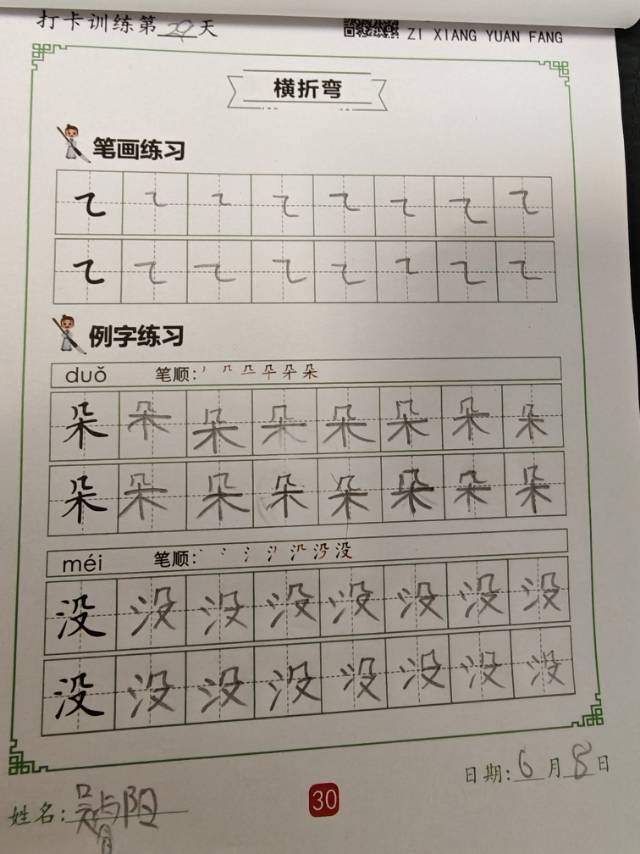 打卡训练第29天
ZI XIANG YUAN FANG
横折弯
笔画练习
例字练习
duǒ 笔顺:
朵 朵 朵 朵 朵 朵 朵 朵
朵 朵 朵 朵 朵 朵 朵 朵
méi 笔顺:
没 没 没 没 没 没 没 没
没 没 没 没 没 没 没 没
日期:6月8日
姓名:
30